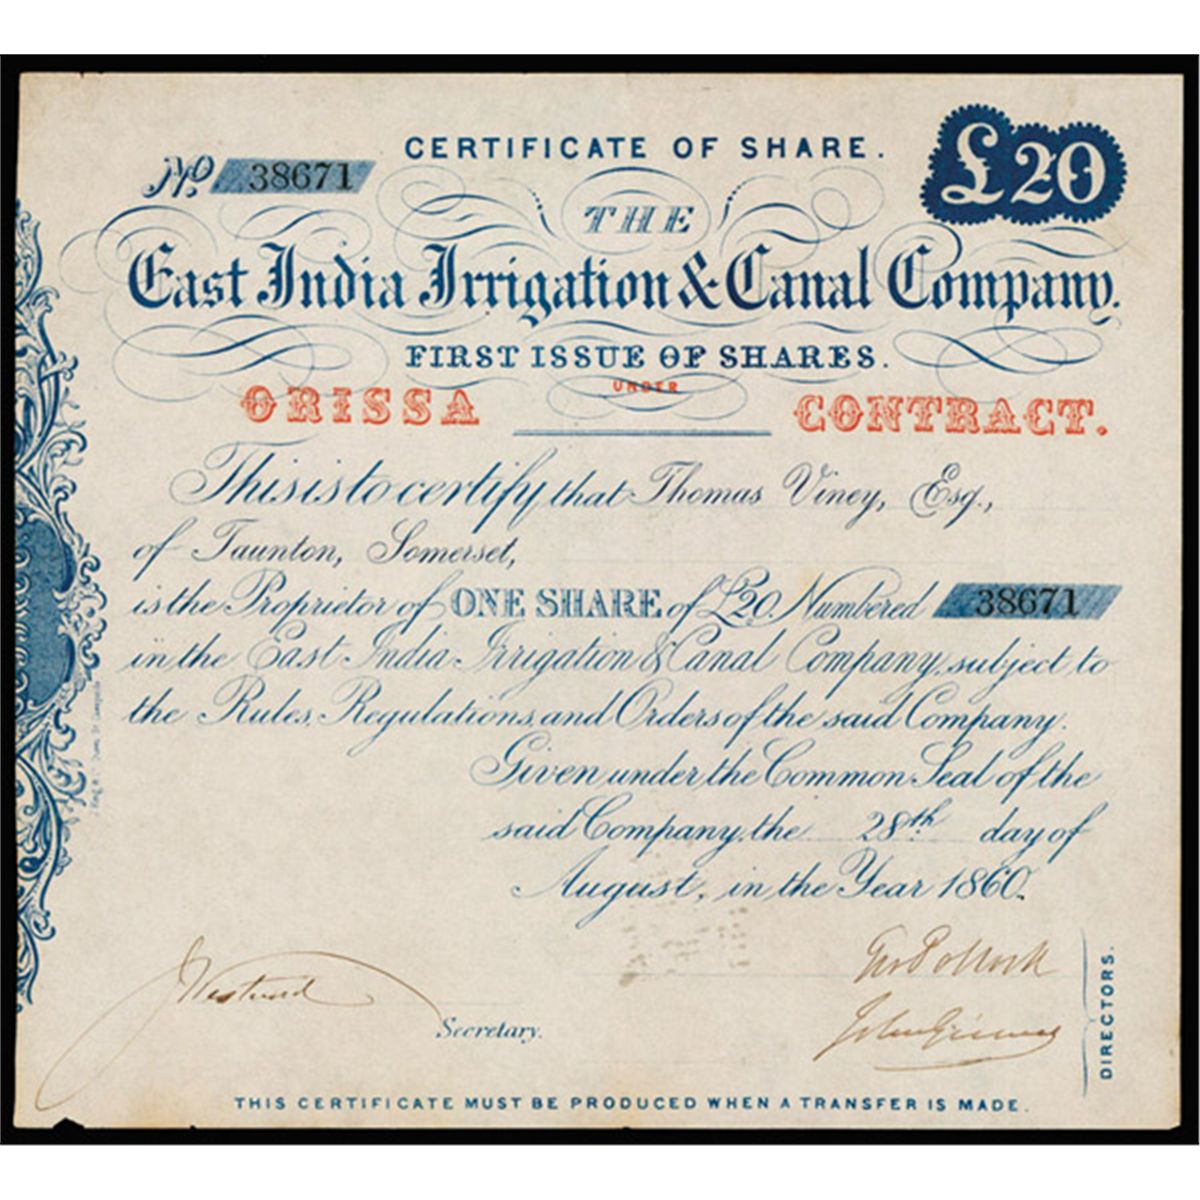 CERTIFICATE OF SHARE.
No. 38671
£20
THE
East India Irrigation & Canal Company.
FIRST ISSUE OF SHARES.
ORISSA UNDER CONTRACT.
This is to certify that Thomas Viney, Esq.,
of Taunton, Somerset,
is the Proprietor of ONE SHARE of £20 Numbered 38671
in the East India Irrigation & Canal Company, subject to
the Rules, Regulations, and Orders of the said Company.
Given under the Common Seal of the
said Company, the 28th day of
August, in the Year 1860.
J Westwood
Secretary.
Geo Pollock
DIRECTORS.
THIS CERTIFICATE MUST BE PRODUCED WHEN A TRANSFER IS MADE.